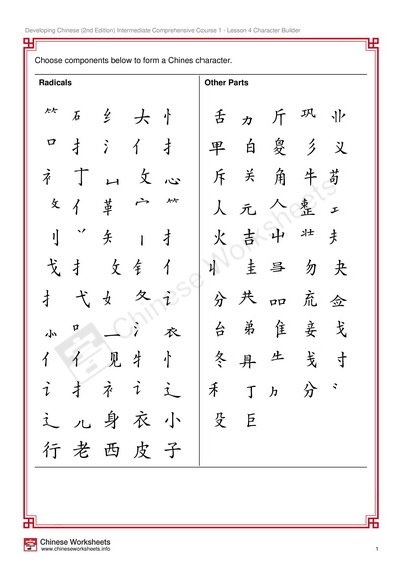 Developing Chinese (2nd Edition) Intermediate Comprehensive Course 1 - Lesson 4 Character Builder
Choose components below to form a Chines character.
Radicals
Other Parts
⺮ 石 纟 大 忄 舌 力 斤 巩 业
口 扌 氵 亻 扌 里 白 叟 彡 义
礻 丁 彐 攵 心 斥 关 角 牛 苟
攵 亻 革 宀 ⺮ 人 元 𠆢 整
刂 丷 矢 丨 扌 火 吉 中 壮 夫
戈 扌 攵 钅 亻 丬 圭 勿 夬
扌 弋 女 夂 讠 分 共 㐬 佥
口 一 氵 衣 台 弟 隹 妾 戈
亻 亻 见 牜 忄 冬 生 戋 寸
讠 扌 礻 讠 辶 禾 丁 分
辶 儿 身 衣 小 殳 巨
行 老 西 皮 子
Chinese Worksheets
Chinese Worksheets
www.chineseworksheets.info
1